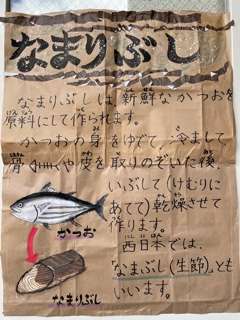 なまりぶし
なまりぶしは新鮮なかつおを
原料にして作られます。
かつおの身をゆでて、冷まして
骨や皮を取りのぞいた後、
いぶして(けむりに
あてて)乾燥させて
作ります。
西日本では、
「なまぶし(生節)」とも
いいます。
かつお
なまりぶし